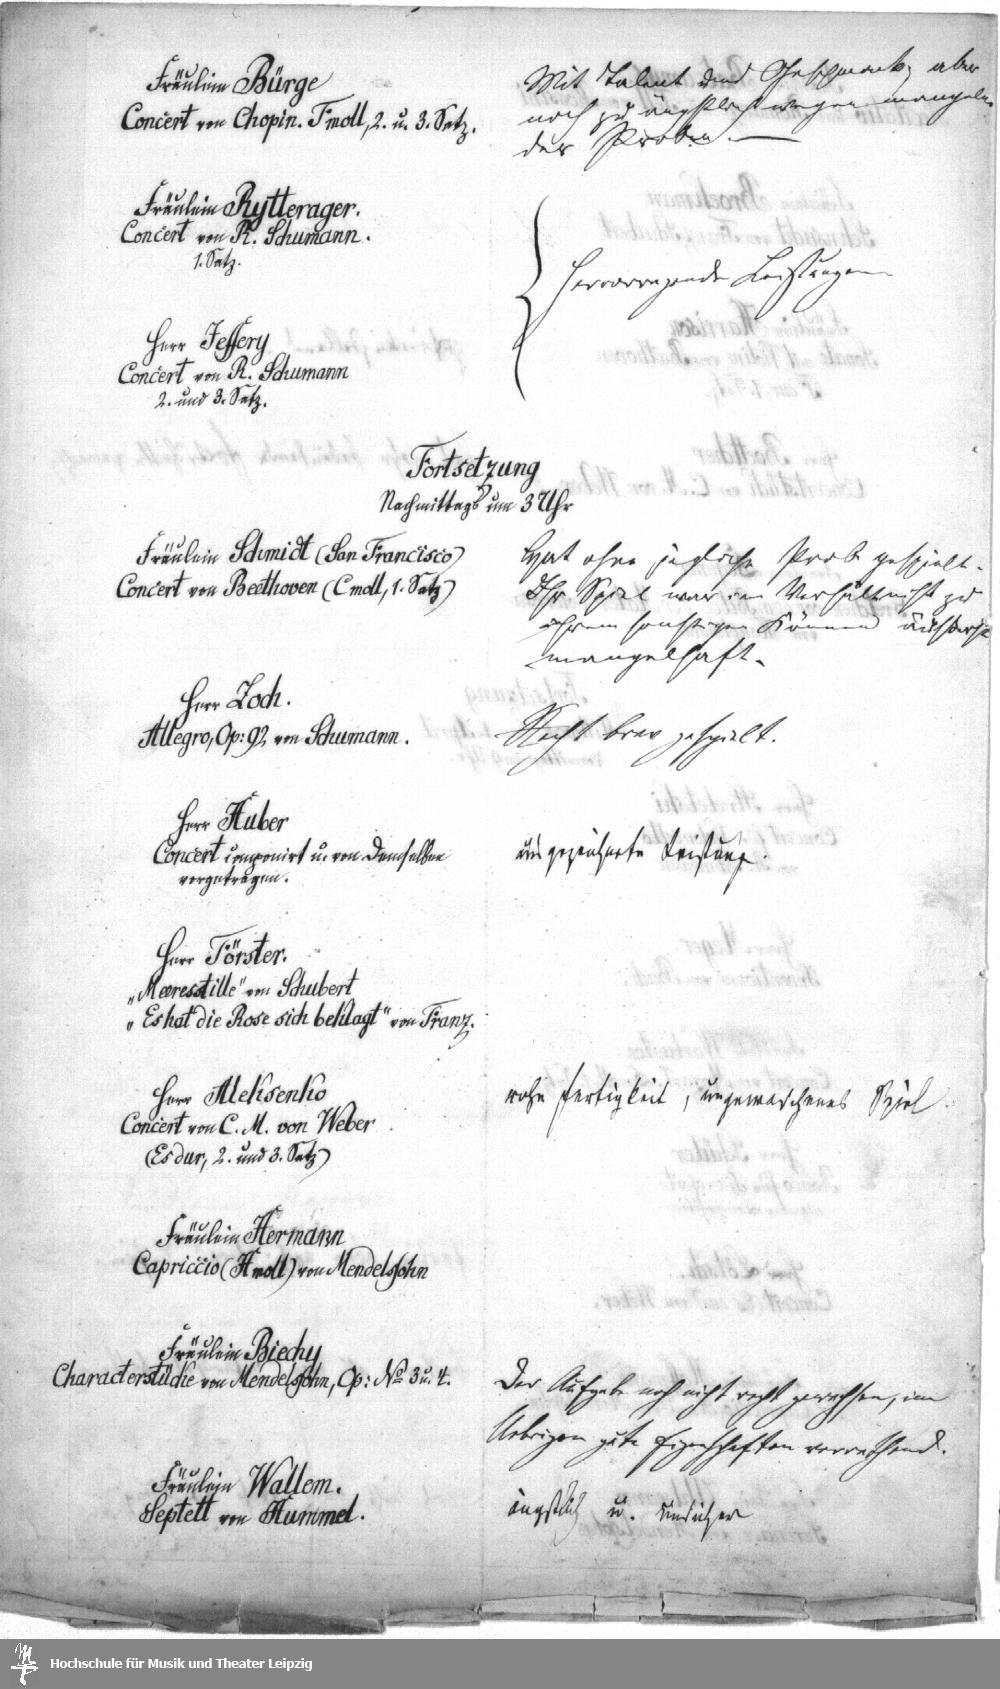 Fräulein Bürge
Concert von Chopin. Fmoll, 2. u. 3. Satz.
Mit Talent und Geschmack, aber
noch zu ängstlich wegen mangeln
der Proben.
Fräulein Rytterager.
Concert von R. Schumann.
1. Satz.
Hervorragende Leistungen
Herr Jeffery
Concert von R. Schumann
2. und 3. Satz.
Fortsetzung
Nachmittags um 3 Uhr
Fräulein Schmidt (San Francisco)
Concert von Beethoven (Cmoll, 1. Satz)
Hat ohne jegliche Probe gespielt.
Ihr Spiel war im Verhältniss zu
ihrem sonstigen Können äußerst
mangelhaft.
Herr Zoch.
Allegro, Op: 92 von Schumann.
Recht brav gespielt.
Herr Huber
Concert componirt u. von Demselben
vorgetragen.
ausgezeichnete Leistung.
Herr Förster.
„Meeresstille" von Schubert
„Es hat die Rose sich beklagt" von Franz.
Herr Aleksenko
Concert von C. M. von Weber
(Esdur, 2. und 3. Satz)
rohe Fertigkeit, ungewaschenes Spiel
Fräulein Hermann
Capriccio (Amoll) von Mendelssohn
Fräulein Biechy
Characterstücke von Mendelssohn, Op: No 3 u. 4.
Der Aufgabe noch nicht recht gewachsen, im
Uebrigen gute Eigenschaften verrathend.
Fräulein Wallem.
Septett von Hummel.
ängstlich u. unsicher
Hochschule für Musik und Theater Leipzig